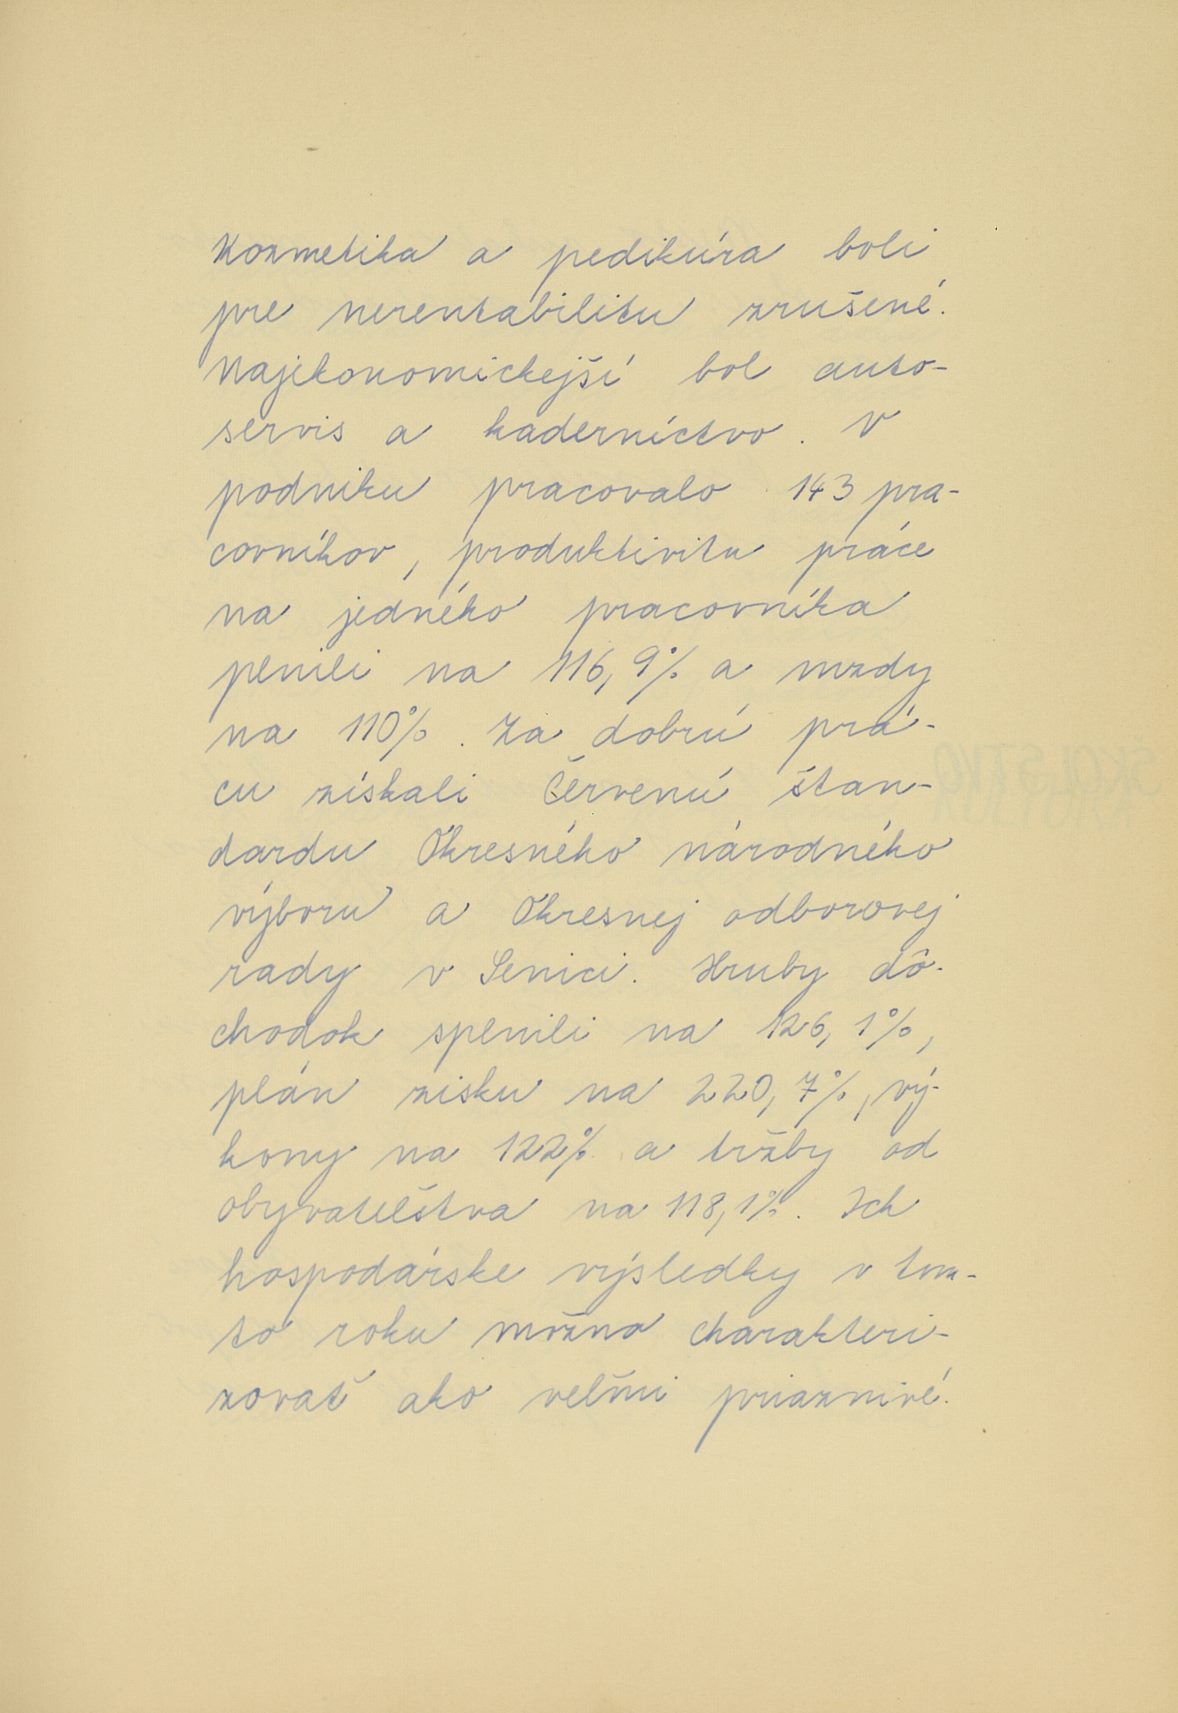 Kozmetika a pedikúra boli
pre nerentabilitu zrušené.
Najekonomickejší bol auto-
servis a kaderníctvo. V
podniku pracovalo 143 pra-
covníkov, produktivitu práce
na jedného pracovníka
plnili na 116,9% a mzdy
na 110%. Za dobrú prá-
cu získali Červenú štan-
dardu Okresného národného
výboru a Okresnej odborovej
rady v Senici. Hrubý dô-
chodok splnili na 126,1%,
plán zisku na 220,7%, vý-
kony na 122% a tržby od
obyvateľstva na 118,1%. Ich
hospodárske výsledky v tom-
to roku možno charakteri-
zovať ako veľmi priaznivé.